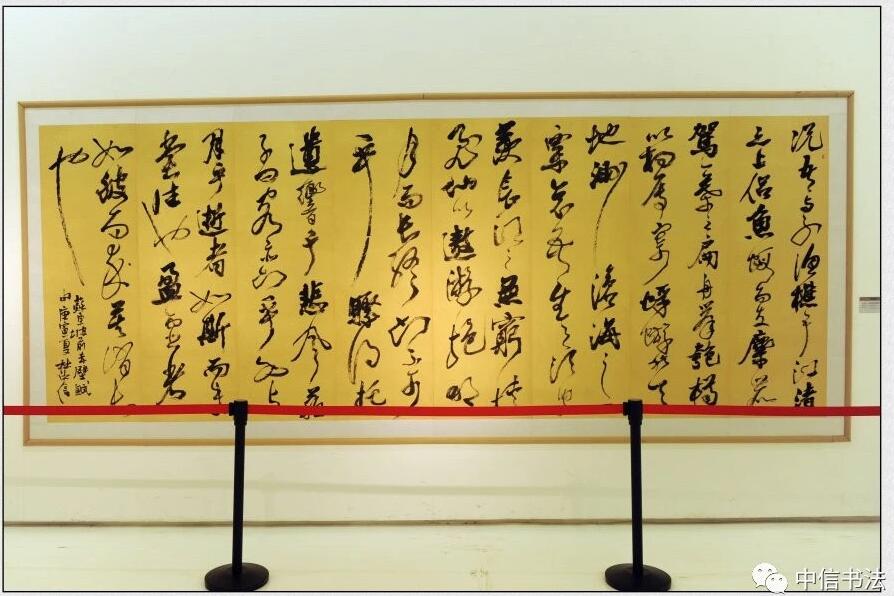 况吾与子渔樵于江渚
之上侣魚蝦而友麋鹿
駕一葉之扁舟舉匏樽
以相屬寄蜉蝣於天
地渺滄海之
粟哀吾生之須臾
羨長江之無窮挾
飛仙以遨游抱明
月而長終知不可
乎驟得托
遺響乎悲風蘇
子曰客亦知夫水與
月乎逝者如斯而未
嘗往也盈虛者
如彼而卒莫消長
也
蘇東坡前赤壁賦
句庚寅夏杜中信
中信书法